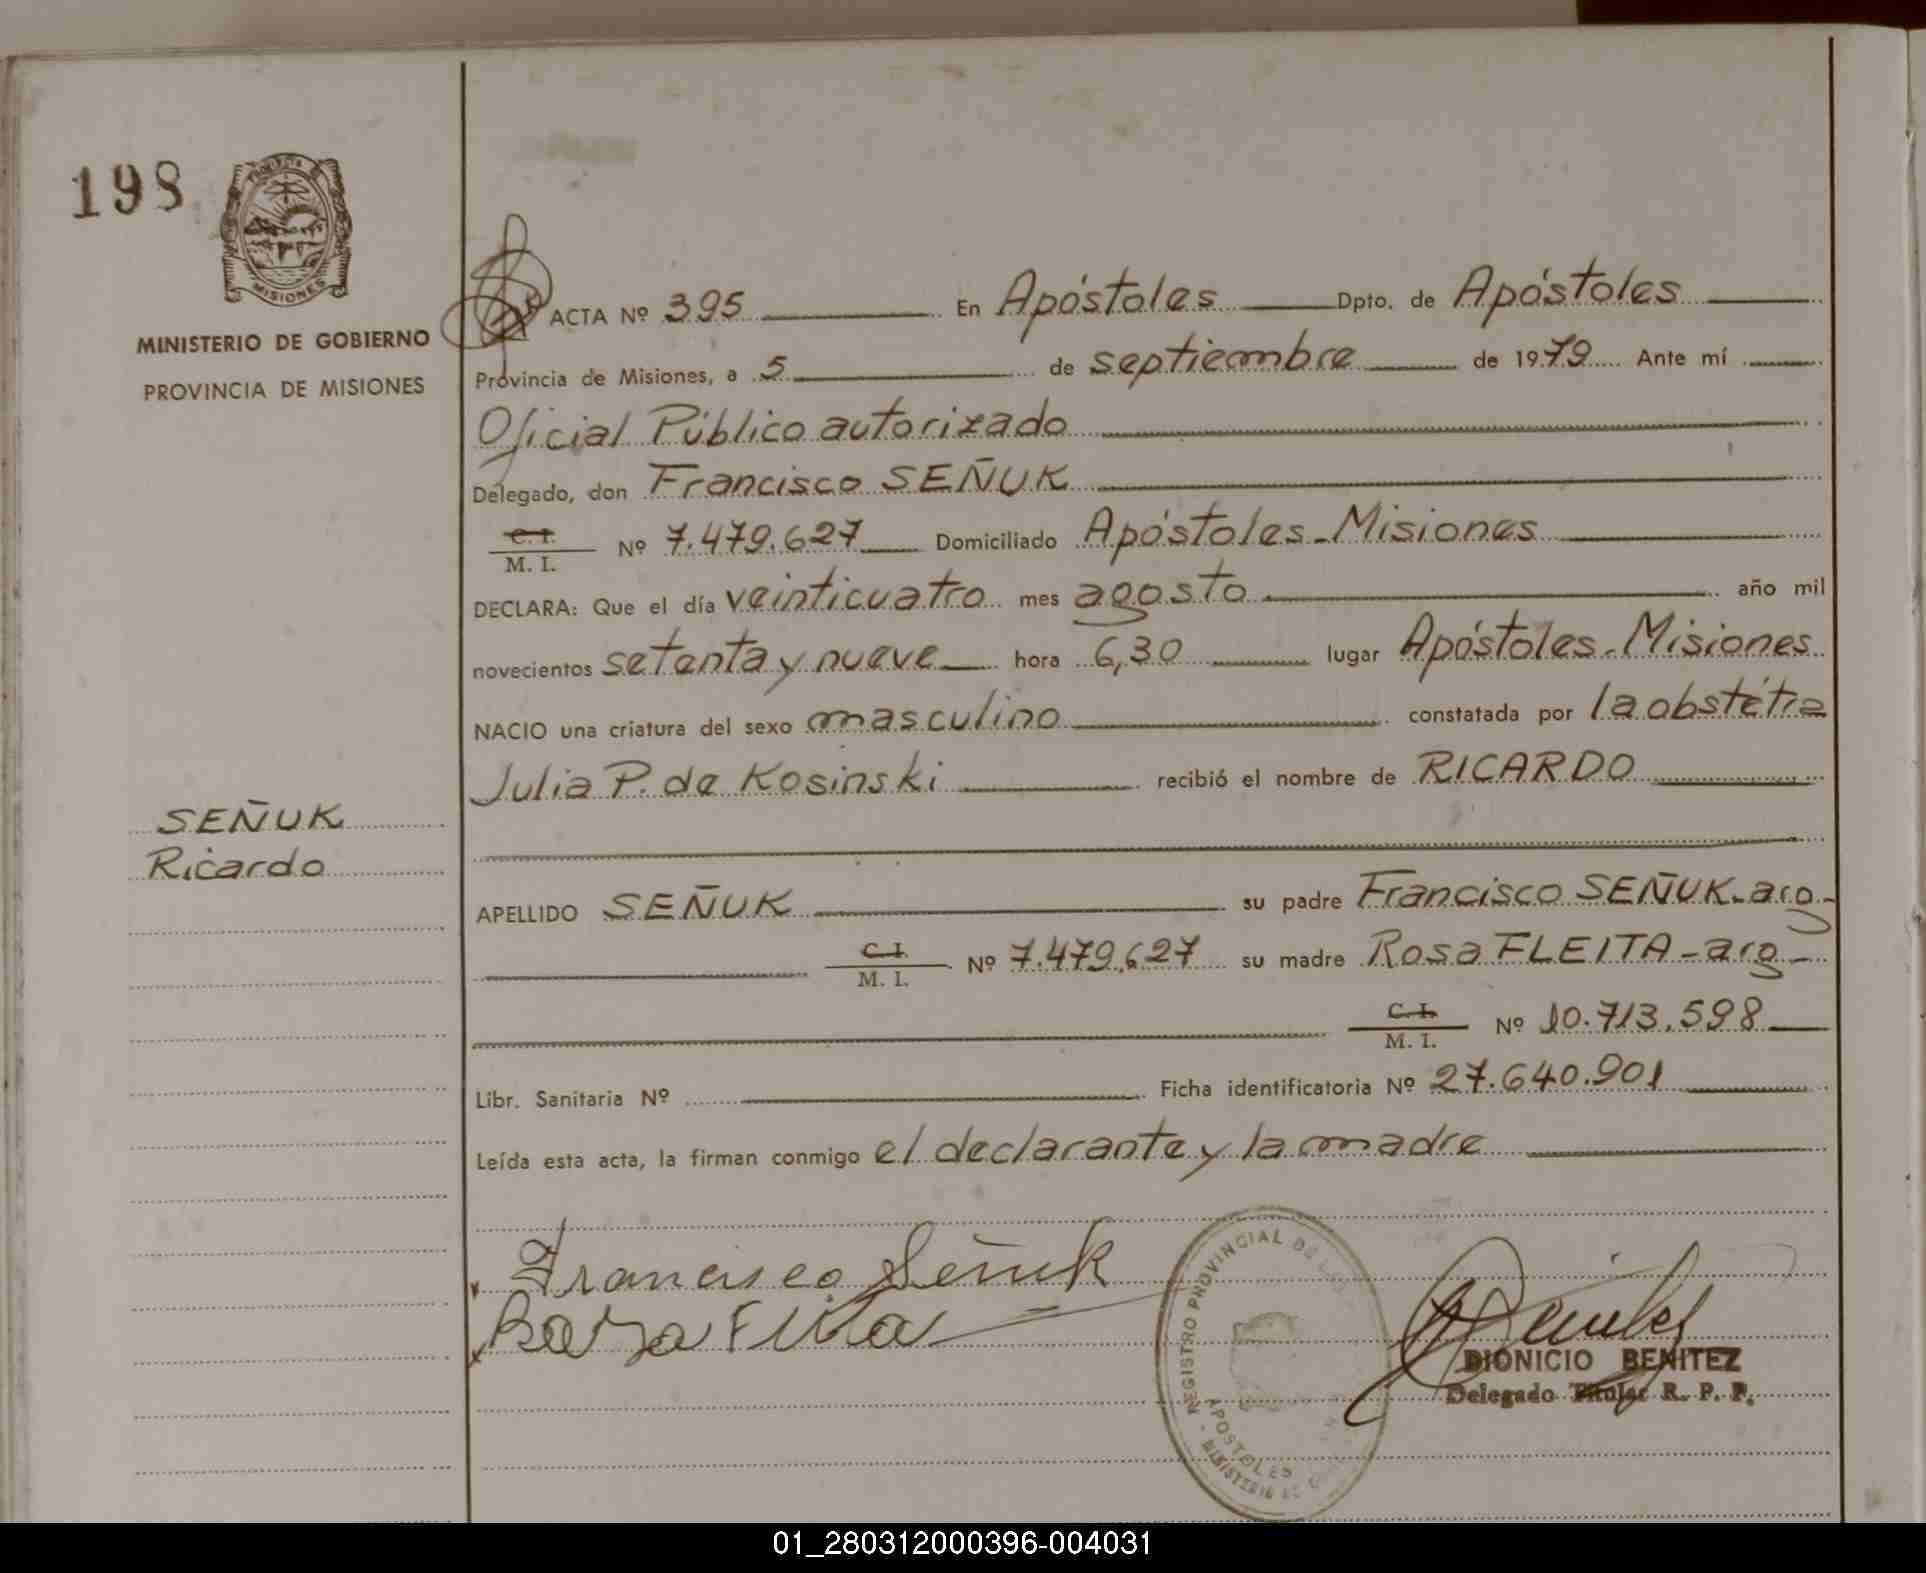 198
MISIONES
MINISTERIO DE GOBIERNO
PROVINCIA DE MISIONES
ACTA Nº 395 En Apóstoles Dpto. de Apóstoles
Provincia de Misiones, a 5 de septiembre de 1979 Ante mí
Oficial Público autorizado
Delegado, don Francisco SEÑUK
C. I.
M. I. Nº 7.479.627 Domiciliado Apóstoles-Misiones
DECLARA: Que el día veinticuatro mes agosto año mil
novecientos setenta y nueve hora 6,30 lugar Apóstoles-Misiones
NACIO una criatura del sexo masculino constatada por la obstétra
Julia P. de Kosinski recibió el nombre de RICARDO
SEÑUK
Ricardo
APELLIDO SEÑUK su padre Francisco SEÑUK-arg-
C. I.
M. I. Nº 7.479.627 su madre Rosa FLEITA-arg-
C. I.
M. I. Nº 10.713.598
Libr. Sanitaria Nº Ficha identificatoria Nº 27.640.901
Leída esta acta, la firman conmigo el declarante y la madre
Francisco Señuk
REGISTRO PROVINCIAL DE
APOSTOLES
MINISTERIO DE
DIONICIO BENITEZ
Delegado Titular R. P. P.
01_280312000396-004031